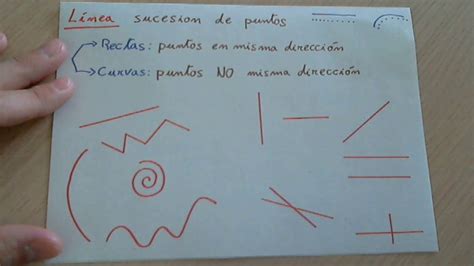 Línea sucesion de puntos
Rectas: puntos en misma dirección
Curvas: puntos NO misma dirección